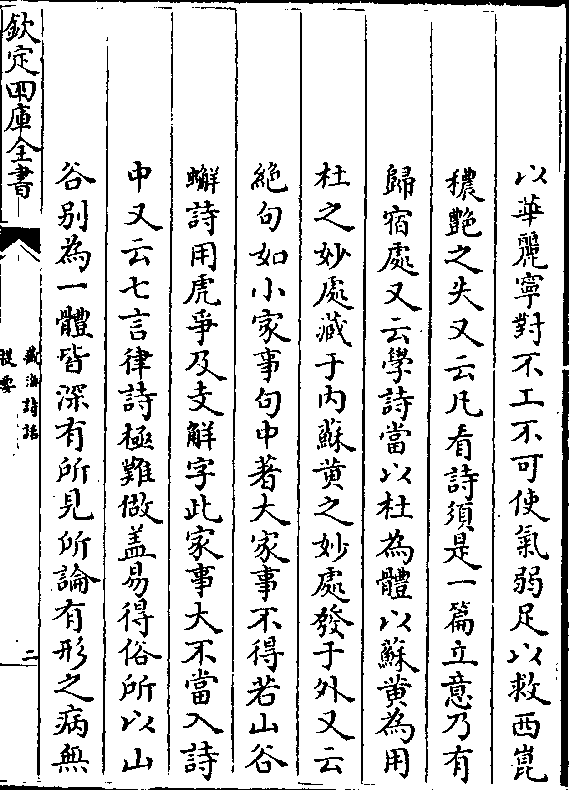 以華麗寧對不工不可使氣弱足以救西崑
穠艷之失又云凡看詩須是一篇立意乃有
歸宿處又云學詩當以杜為體以蘇黄為用
杜之妙處藏于内蘇黄之妙處發于外又云
絶句如小家事句中著大家事不得若山谷
蠏詩用虎爭及支解字此家事大不當入詩
中又云七言律詩極難做盖易得俗所以山
谷别為一體皆深有所見所論有形之病無
欽定四庫全書
藏海詩話
提要
二